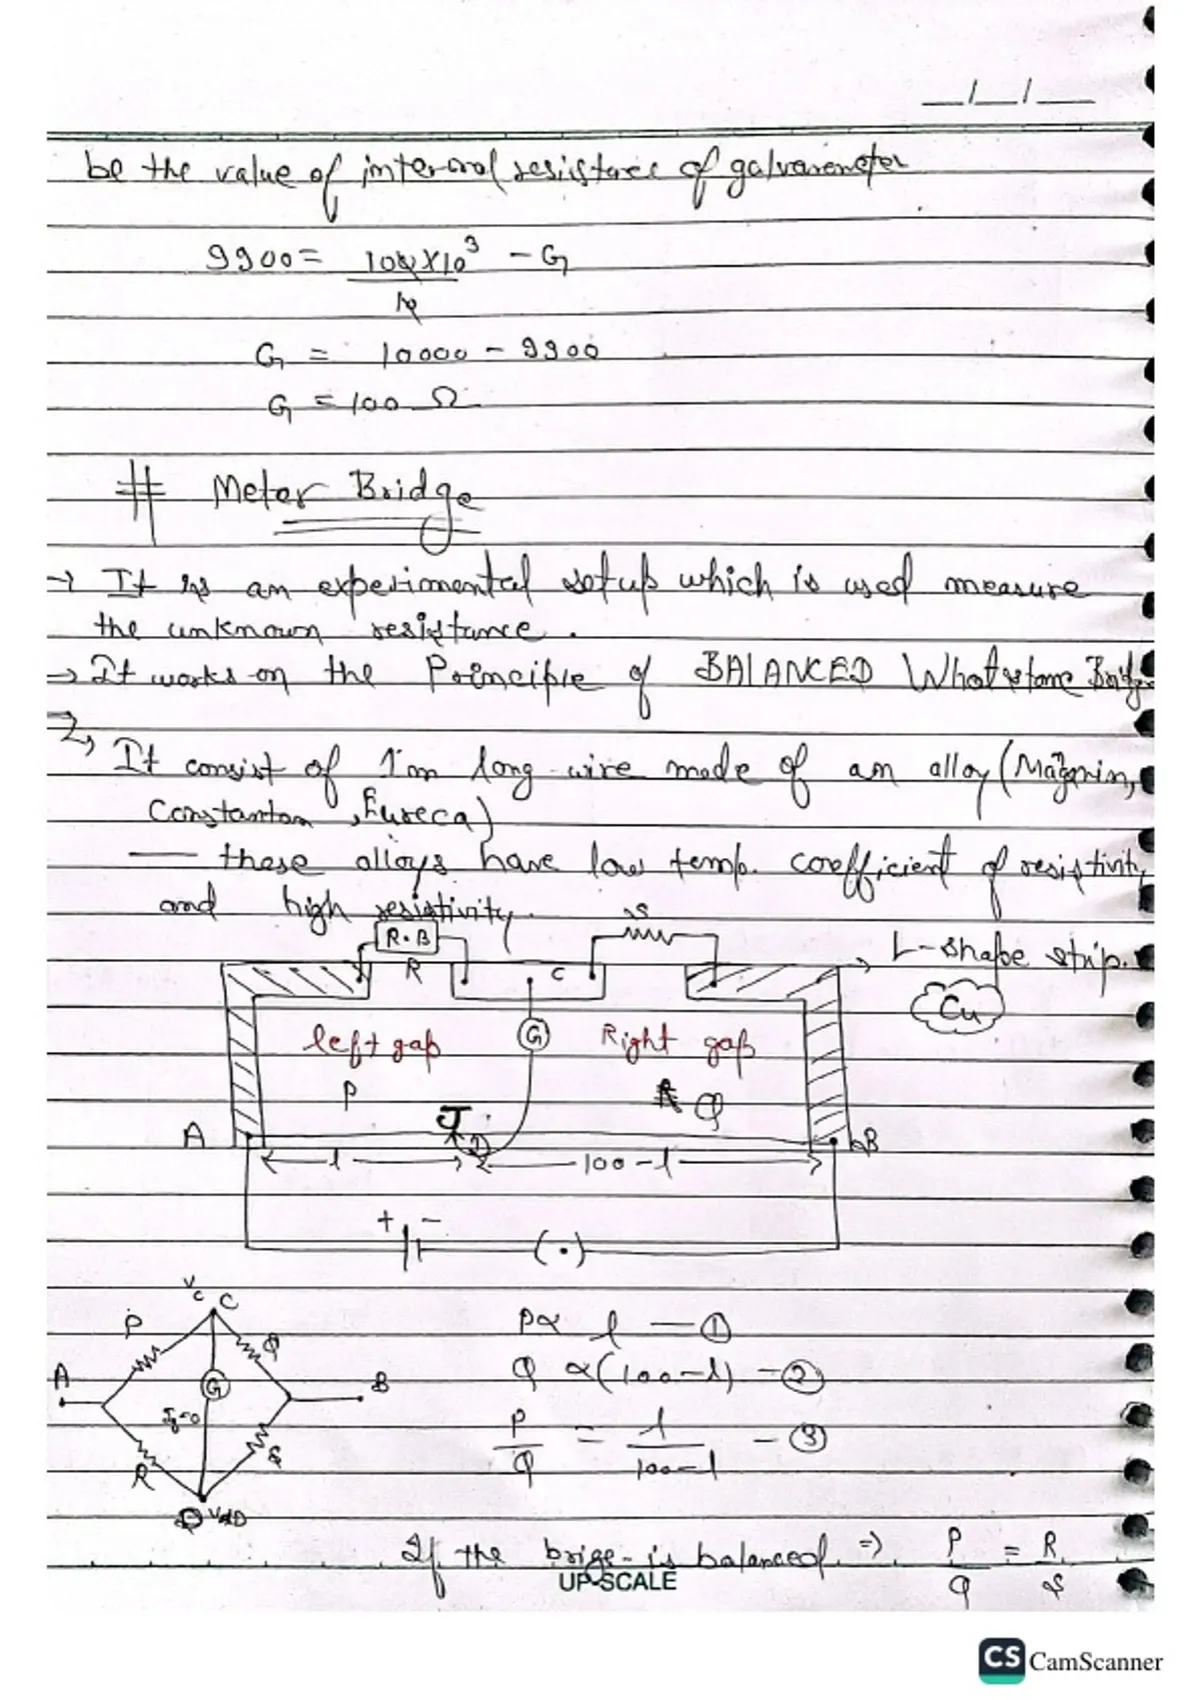 __/__/__
be the value of internal resistance of galvanometer
9900 = 100×10³ - G
10
G = 10000 - 9900
G = 100 Ω
# Meter Bridge
→ It is an experimental setup which is used measure
the unknown resistance.
→ It works on the Principle of BALANCED Whatstone Bridge
→ It consist of 1m long wire made of an alloy (Maganin,
Constantan, Eureca)
— these alloys have low temp. coefficient of resistivity
and high resistivity.
R.B S
R C L-shape strip.
Cu
left gap G Right gap
P Q
J
A D B
l 100-l
+ - (·)
Vc C
P Q
A G B
Ig=0
R S
D
P ∝ l — ①
Q ∝ (100-l) — ②
P/Q = l/100-l — ③
If the brige is balanced. ⇒ P/Q = R/S
UP-SCALE
CS CamScanner